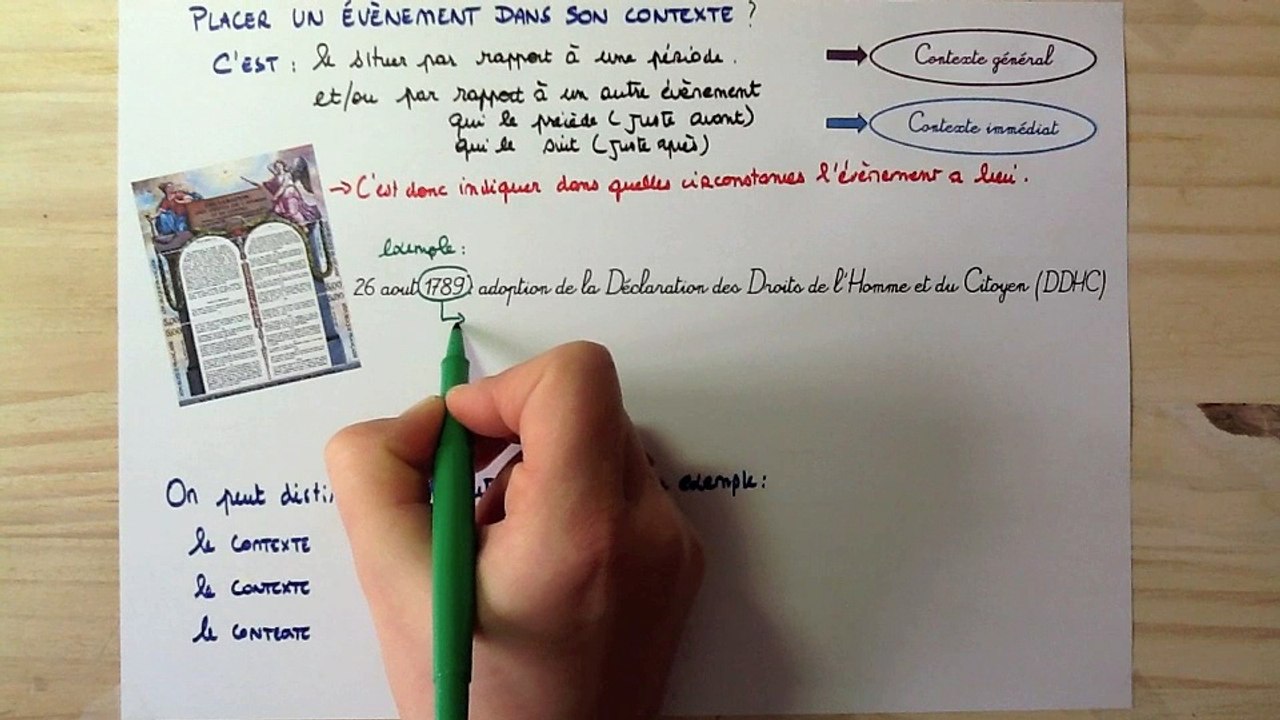 PLACER UN ÉVÈNEMENT DANS SON CONTEXTE ?
C'EST : le situer par rapport à une période.
et/ou par rapport à un autre évènement
qui le précède (juste avant)
qui le suit (juste après)
Contexte général
Contexte immédiat
→ C'est donc indiquer dans quelles circonstances l'évènement a lieu.
exemple :
26 aout 1789 : adoption de la Déclaration des Droits de l'Homme et du Citoyen (DDHC)
On peut exemple :
le CONTEXTE
le CONTEXTE
le CONTEXTE